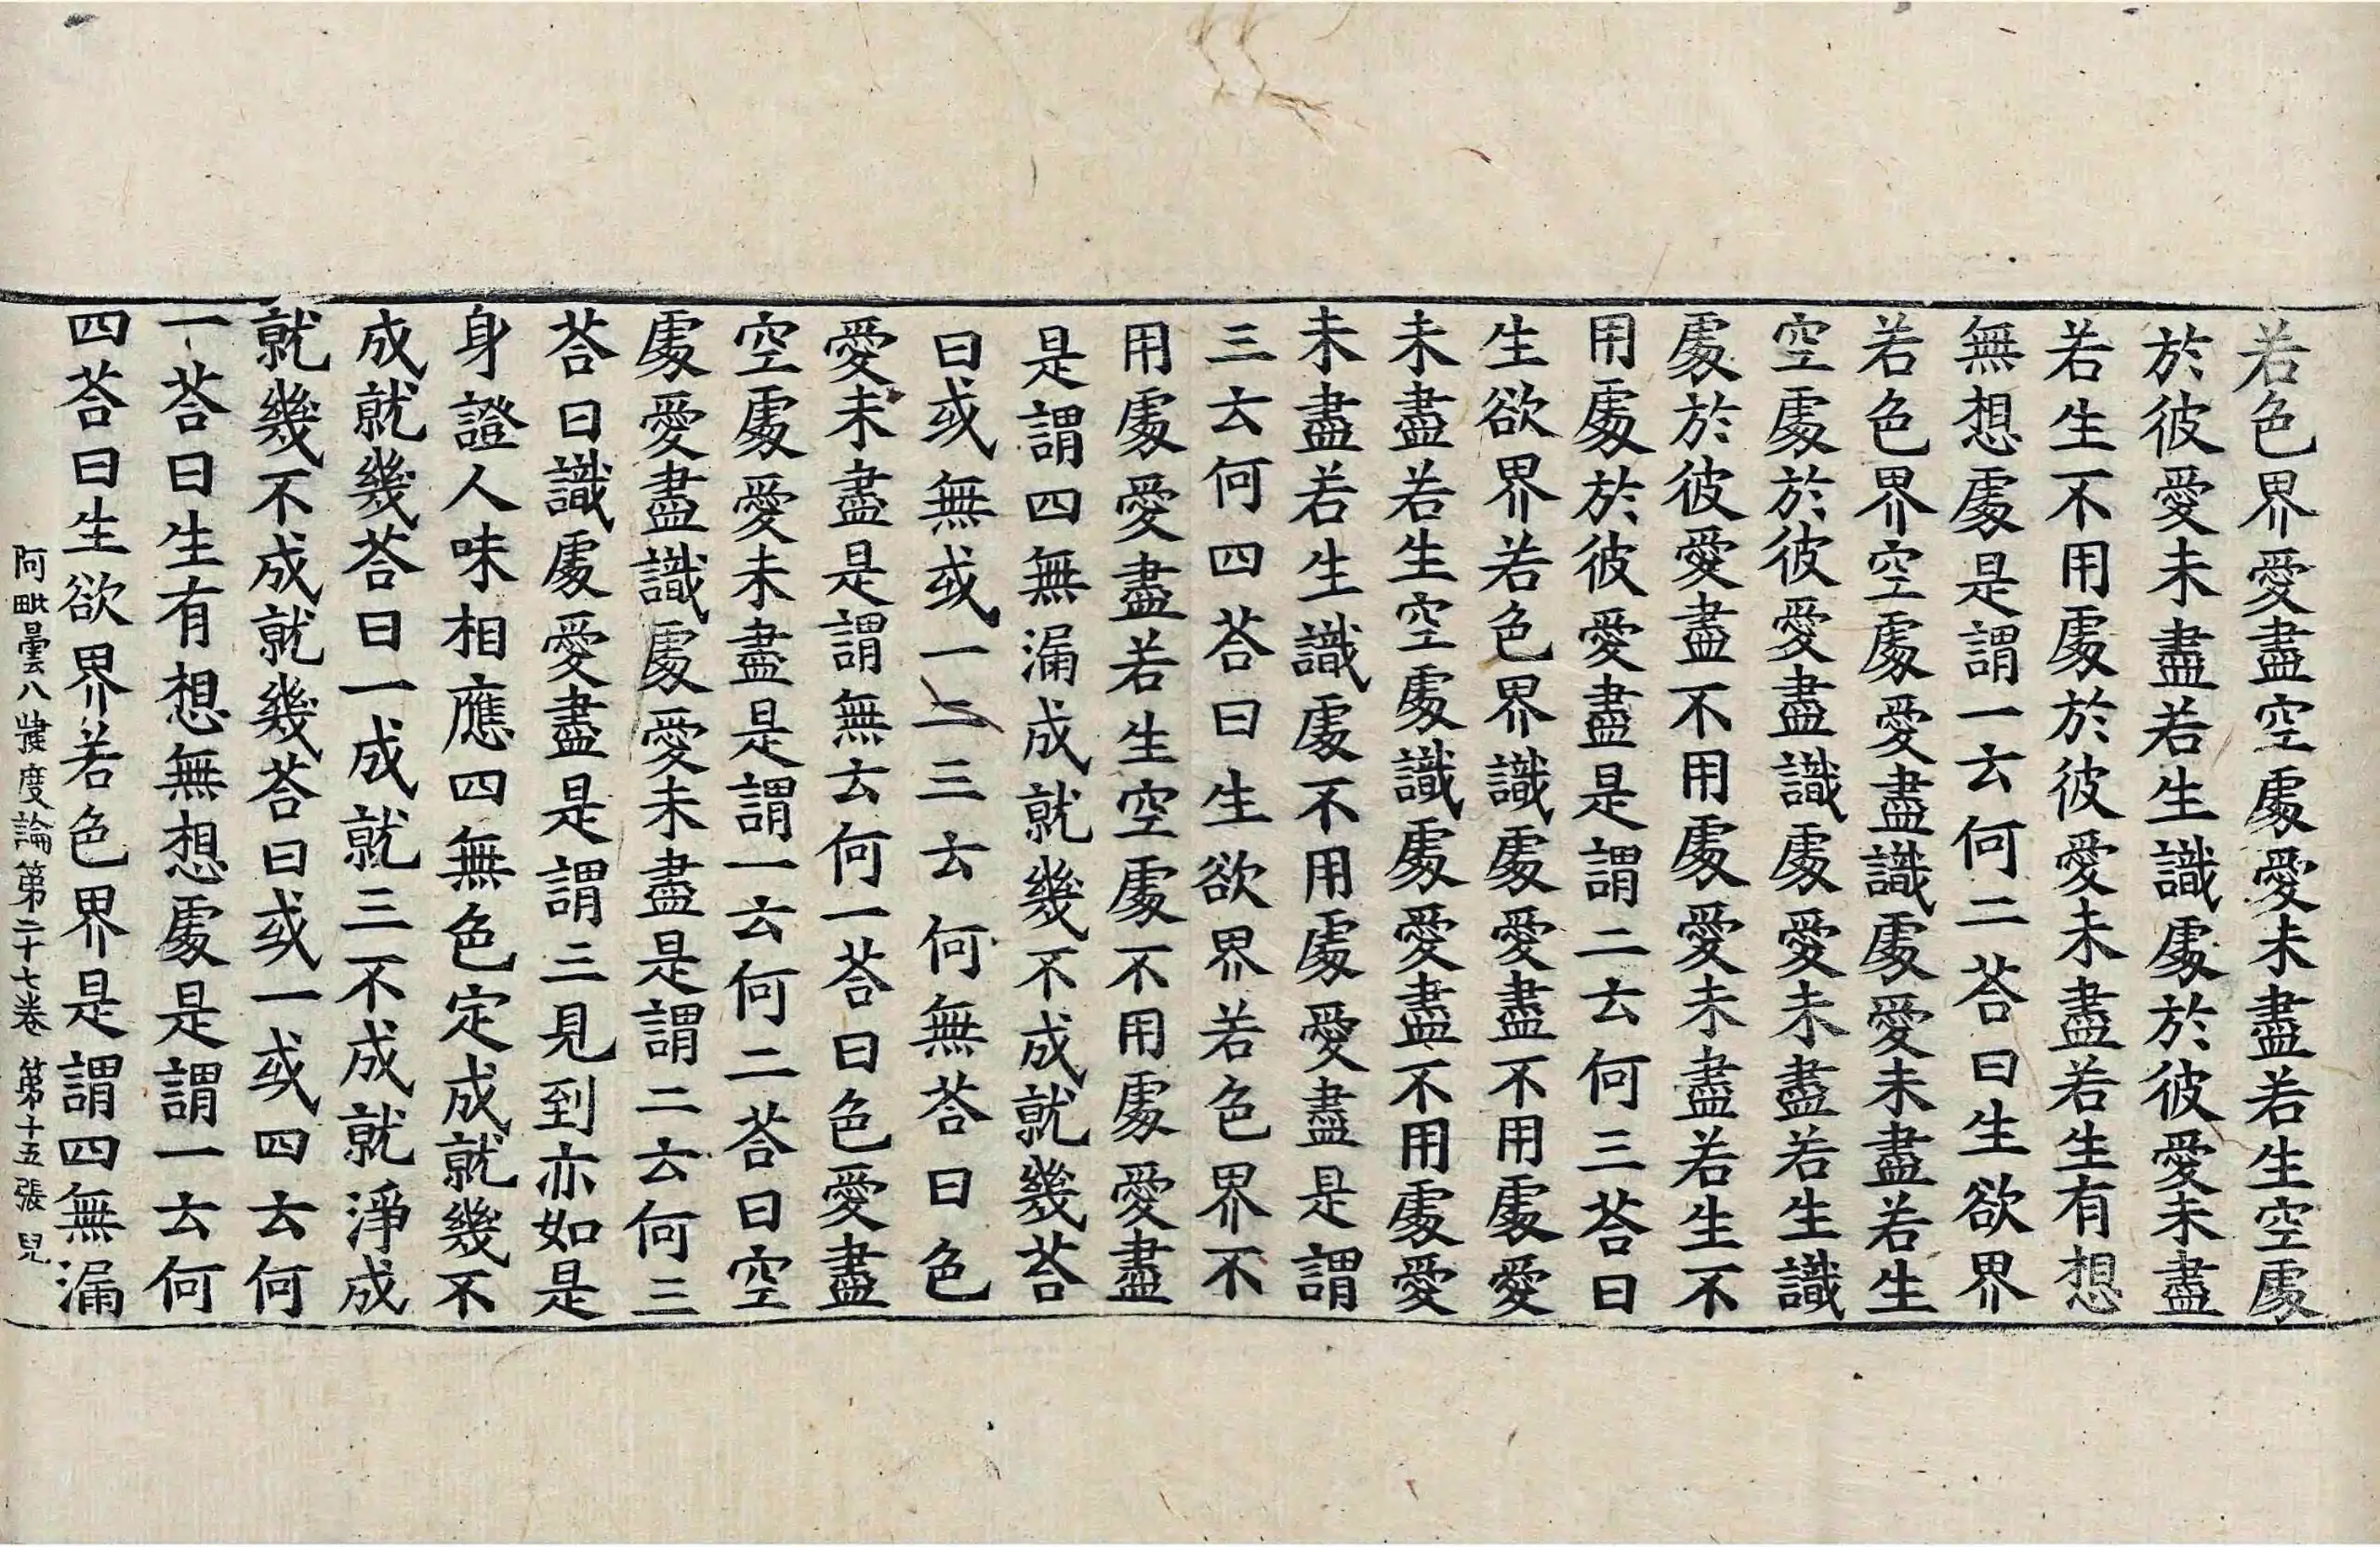 若色界愛盡空處愛未盡若生空處
於彼愛未盡若生識處於彼愛未盡
若生不用處於彼愛未盡若生有想
無想處是謂一云何二荅曰生欲界
若色界空處愛盡識處愛未盡若生
空處於彼愛盡識處愛未盡若生識
處於彼愛盡不用處愛未盡若生不
用處於彼愛盡是謂二云何三荅曰
生欲界若色界識處愛盡不用處愛
未盡若生空處識處愛盡不用處愛
未盡若生識處不用處愛盡是謂
三云何四荅曰生欲界若色界不
用處愛盡若生空處不用處愛盡
是謂四無漏成就幾不成就幾荅
曰或無或一二三云何無荅曰色
愛未盡是謂無云何一荅曰色愛盡
空處愛未盡是謂一云何二荅曰空
處愛盡識處愛未盡是謂二云何三
荅曰識處愛盡是謂三見到亦如是
身證人味相應四無色定成就幾不
成就幾荅曰一成就三不成就淨成
就幾不成就幾荅曰或一或四云何
一荅曰生有想無想處是謂一云何
四荅曰生欲界若色界是謂四無漏
阿毗曇八揵度論第二十七卷 第十五張 皃